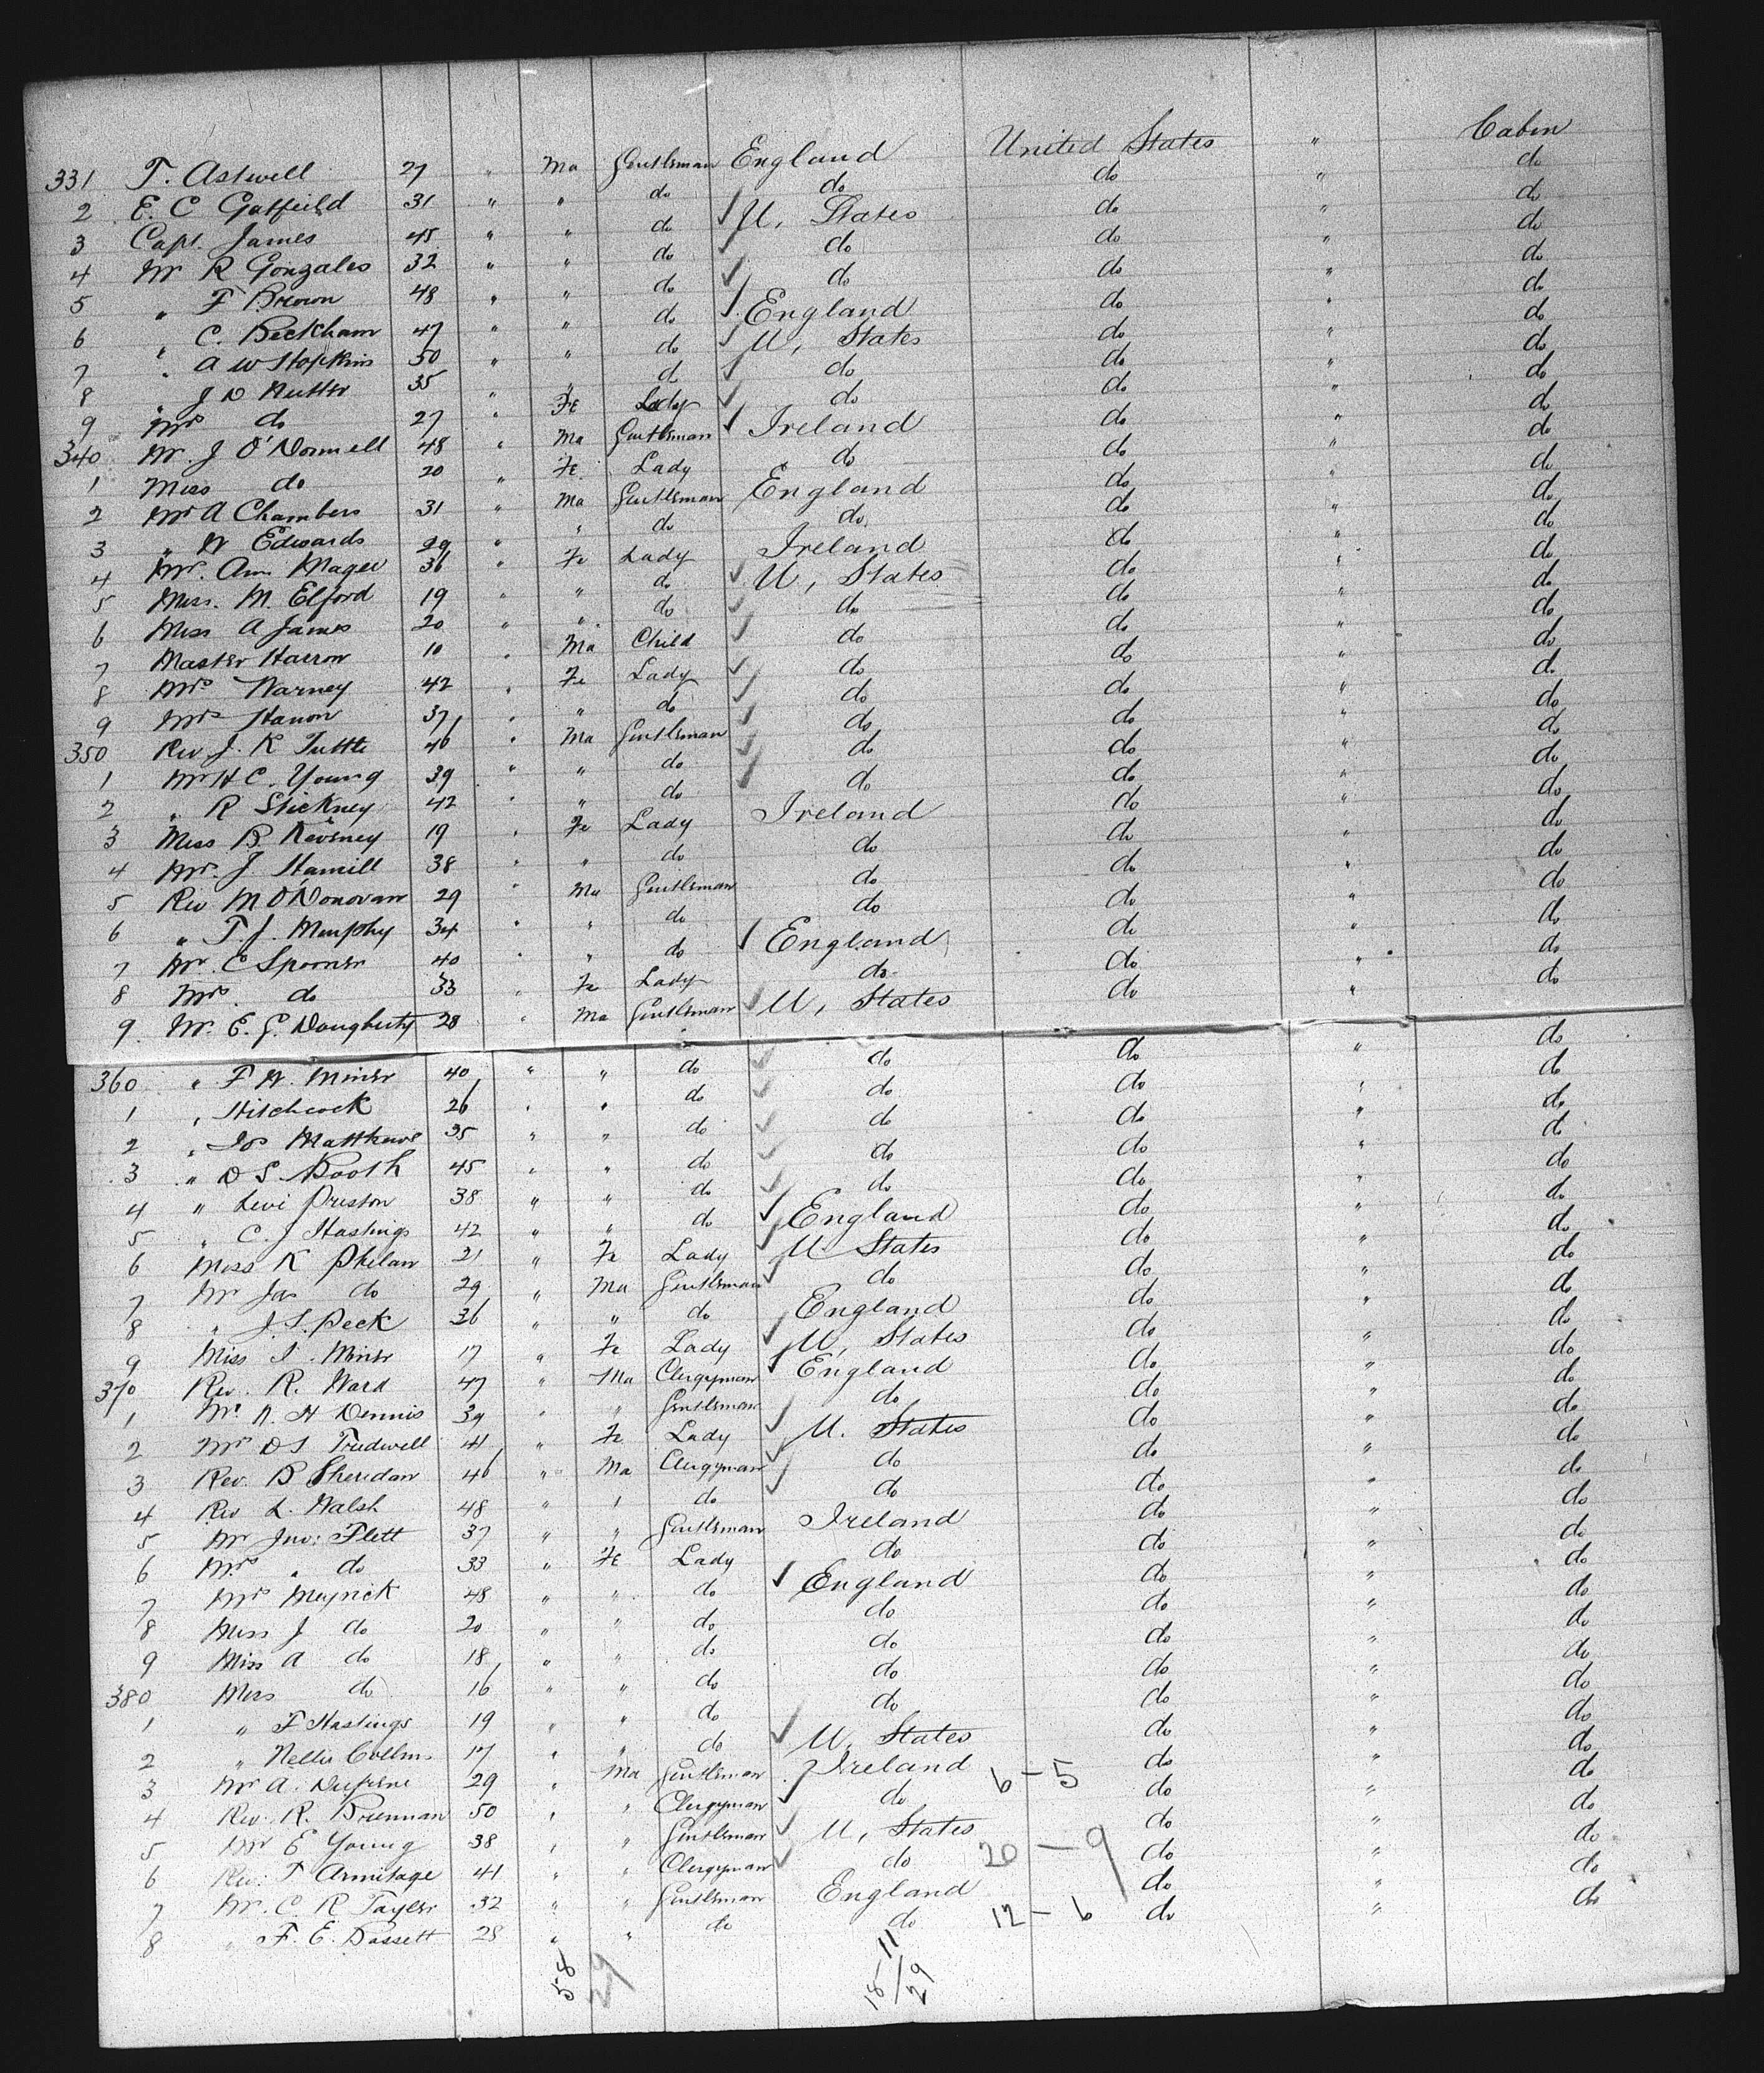 331 T. Astwell 27 " Ma Gentleman England United States " Cabin
2 E. C Gatfeild 31 " " do do do " do
3 Capt. James 45 " " do U, States do " do
4 Mr R Gonzales 32 " " do do do " do
5 " F Brown 48 " " do do do " do
6 " C. Beckham 47 " " do England do " do
7 " A W Hopkins 50 " " do U, States do " do
8 " J D Nutter 35 " " do do do " do
9 Mrs do 27 " Fe Lady do do " do
340 Mr. J O'Donnell 48 " Ma Gentleman Ireland do " do
1 Miss do 20 " Fe Lady do do " do
2 Mr A Chambers 31 " Ma Gentleman England do " do
3 " W Edwards 29 " " do do do " do
4 Mrs. Ann Magee 36 " Fe Lady Ireland do " do
5 Miss. M. Elford 19 " " do U, States do " do
6 Miss A James 20 " " do do do " do
7 Master Harron 10 " Ma Child do do " do
8 Mrs Narney 42 " Fe Lady do do " do
9 Mrs Hanon 37 " " do do do " do
350 Rev J. K Tuttle 46 " Ma Gentleman do do " do
1 Mr H C. Young 39 " " do do do " do
2 " R Stickney 42 " " do do do " do
3 Miss B. Keveney 19 " Fe Lady Ireland do " do
4 Mrs. J. Hamill 38 " " do do do " do
5 Rev M O'Donovan 29 " Ma Gentleman do do " do
6 " T. J. Murphy 34 " " do do do " do
7 Mr. E Spooner 40 " " do England do " do
8 Mrs. do 33 " Fe Lady do do " do
9. Mr. E. G. Dougherty 28 " Ma Gentleman U, States do " do
360 " F W. Miner 40 " " do do do " do
1 " Hitchcock 26 " " do do do " do
2 " Jos Matthews 35 " " do do do " do
3 " D S. Booth 45 " " do do do " do
4 " Levi Preston 38 " " do do do " do
5 " C. J Hastings 42 " " do England do " do
6 Miss K Phelan 21 " Fe Lady U. States do " do
7 Mr Jas do 29 " Ma Gentleman do do " do
8 " J. S. Peck 36 " " do England do " do
9 Miss I. Miner 17 " Fe Lady U, States do " do
370 Rev. R. Ward 47 " Ma Clergyman England do " do
1 Mr. N. H Dennis 39 " " Gentleman do do " do
2 Mrs D S Tredwell 41 " Fe Lady U. States do " do
3 Rev. B Sheridan 46 " Ma Clergyman do do " do
4 Rev L. Walsh 48 " " do do do " do
5 Mr Jno: Flett 37 " " Gentleman Ireland do " do
6 Mrs " do 33 " Fe Lady do do " do
7 Mrs Meyrick 48 " " do England do " do
8 Miss J do 20 " " do do do " do
9 Miss A do 18 " " do do do " do
380 Miss do 16 " " do do do " do
1 " F Hastings 19 " " do do do " do
2 " Nellie 17 " " do U. States do " do
3 Mr A. 29 " Ma Gentleman Ireland 6-5 do " do
4 Rev. R. Brennan 50 " " Clergyman do do " do
5 Mr E Young 38 " " Gentleman U, States do " do
6 Rev: T Armitage 41 " " Clergyman do 20-9 do " do
7 Mr. C. R Tayler 32 " " Gentleman England do " do
8 " F. E. Bassett 28 " " do do 12-6 do " do
58
29
18-11/29